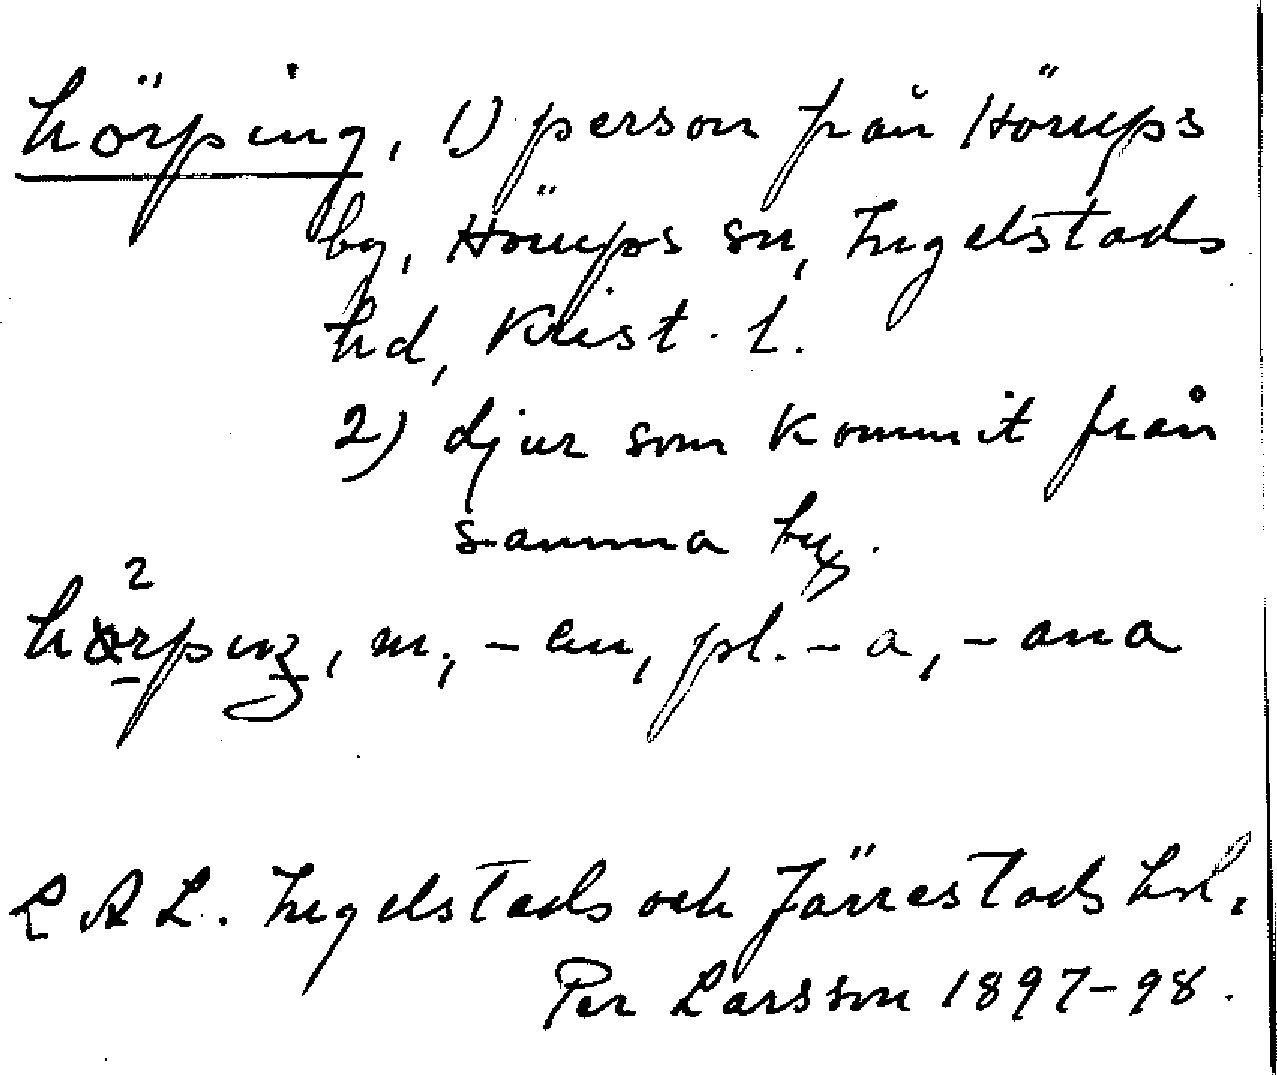 hörping, 1) person från Hörups
by, Hörups sn, Ingelstads
hd, Krist. l.
2) djur som kommit från
samma by.
m., -en, pl. -a, -ana
L A L. Ingelstads och Järrestads hd.
Per Larsson 1897-98.